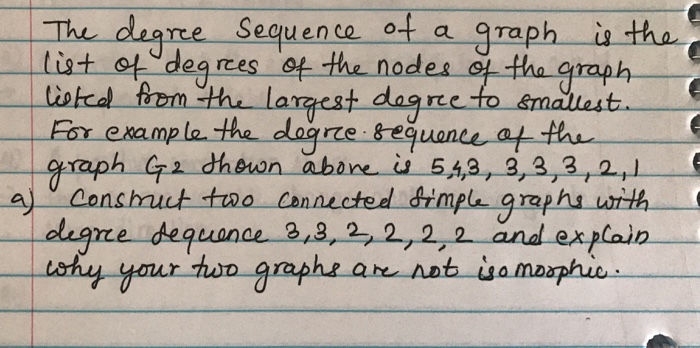 The degree Sequence of a graph is the
list of degrees of the nodes of the graph
listed from the largest degree to smallest.
For example the degree sequence of the
graph G2 shown above is 5,4,3, 3, 3, 3, 2, 1
a) Construct two connected simple graphs with
degree sequence 3, 3, 2, 2, 2, 2 and explain
why your two graphs are not isomorphic.